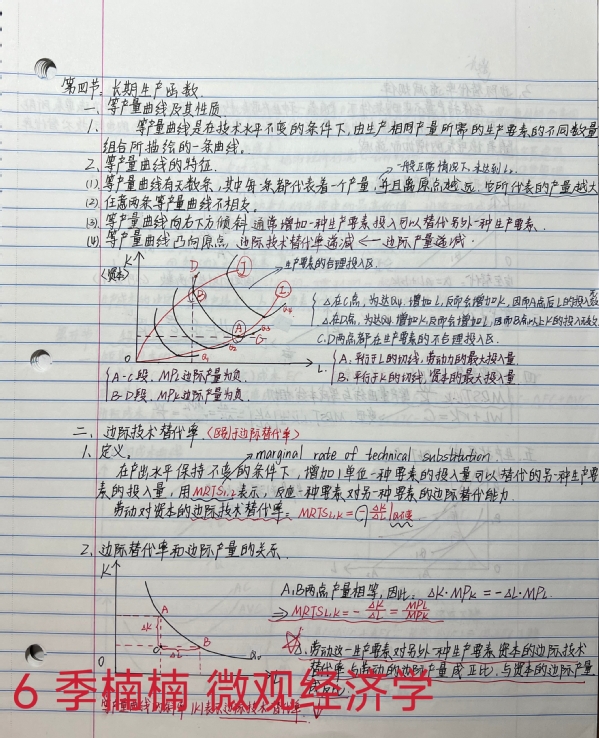 第四节、长期生产函数.
一、等产量曲线及其性质.
1、 等产量曲线是在技术水平不变的条件下,由生产相同产量所需的生产要素的不同数量
组合所描绘的一条曲线。
2、等产量曲线的特征.
一般正常情况下,未达到L₂.
(1)、等产量曲线有无数条,其中每一条都代表着一个产量,并且离原点越远,它所代表的产量越大
(2)、任意两条等产量曲线不相交。
(3)、等产量曲线向右下方倾斜 通常增加一种生产要素投入可以替代另外一种生产要素.
(4)、等产量曲线凸向原点,边际技术替代率递减 ← 边际产量递减.
K
(资本)
D
J
B
I
A
C
Q₁
Q₂
Q₃
Q₄
0
L
生产要素的合理投入区.
△在C点,为达Q4,增加L,反而会增加K,因而A点后L的投入无效
△在D点,为达Q4,增加K,反而会增加L,因而B点以上K的投入无效
C.D两点都在生产要素的不合理投入区.
A、平行于L的切线,劳动力的最大投入量
B、平行于K的切线,资本的最大投入量
A-C段,MPL边际产量为负.
B-D段,MPK边际产量为负.
二、边际技术替代率(区别于边际替代率)
1、定义. marginal rate of technical substitution.
在产出水平保持不变的条件下,增加1单位一种要素的投入量可以替代的另一种生产要
素的投入量,用MRTS1,2表示,反应一种要素对另一种要素的边际替代能力.
劳动对资本的边际技术替代率:MRTSL,K=(-)ΔK/ΔL|Q不变
2、边际替代率和边际产量的关系.
K
A
ΔK
ΔL
B
Q₀
0
L
A,B两点产量相等,因此:ΔK·MPK = -ΔL·MPL
⇒ MRTSL,K = -ΔK/ΔL = MPL/MPK
△、劳动这一生产要素对另外一种生产要素资本的边际技术
替代率与劳动的边际产量成正比,与资本的边际产量
成反比.
等产量曲线的斜率|K|表示边际技术替代率.
6 季楠楠 微观经济学